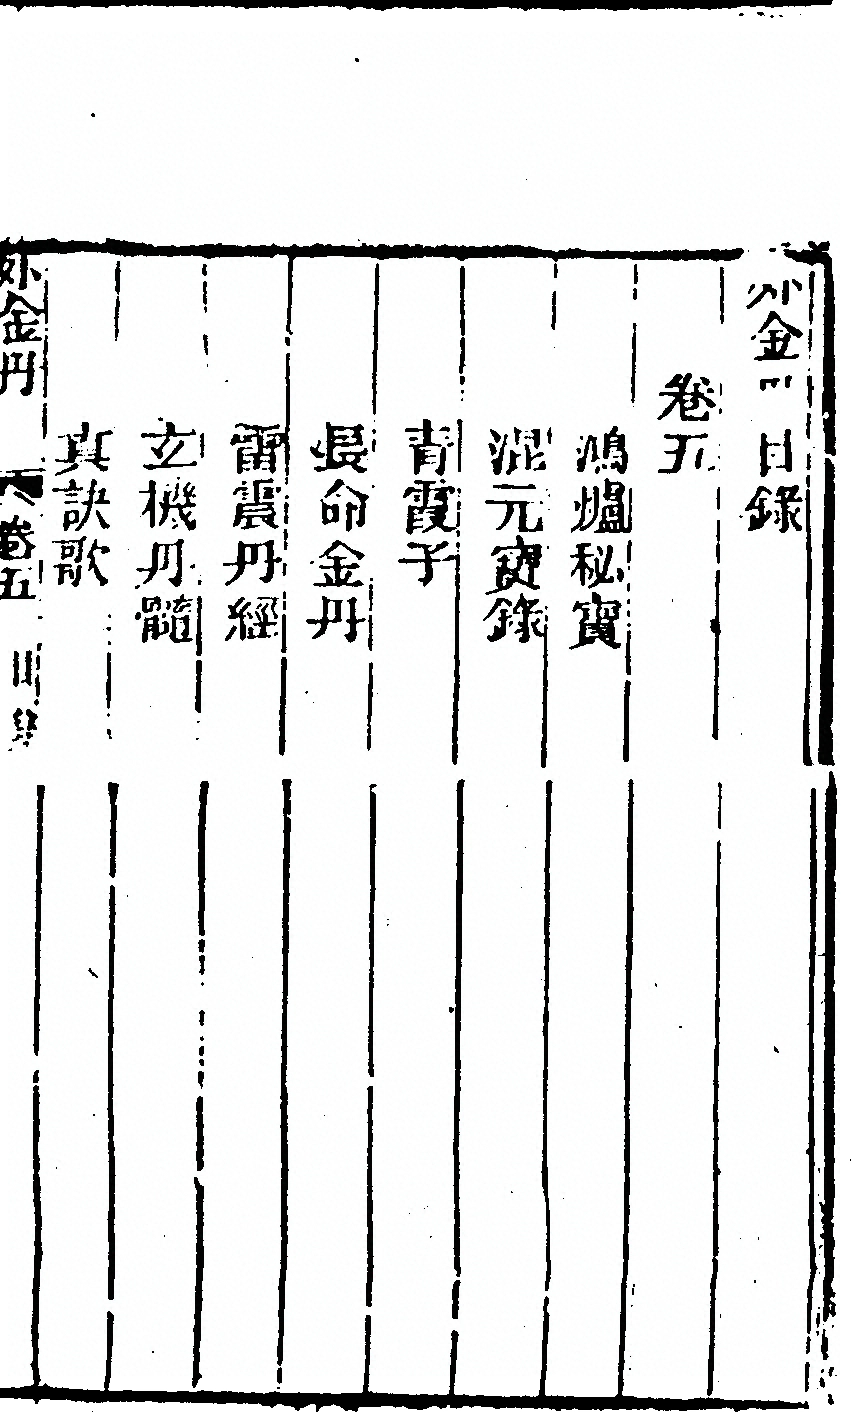 外金丹目錄
卷五
鴻爐秘寶
混元寶錄
青霞子
長命金丹
雷震丹經
玄機丹髓
真訣歌
外金丹 卷五 目錄